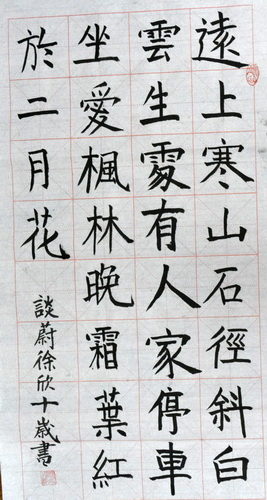 遠上寒山石徑斜白
雲生處有人家停車
坐愛楓林晚霜葉紅
於二月花
談蔚徐欣十歲書